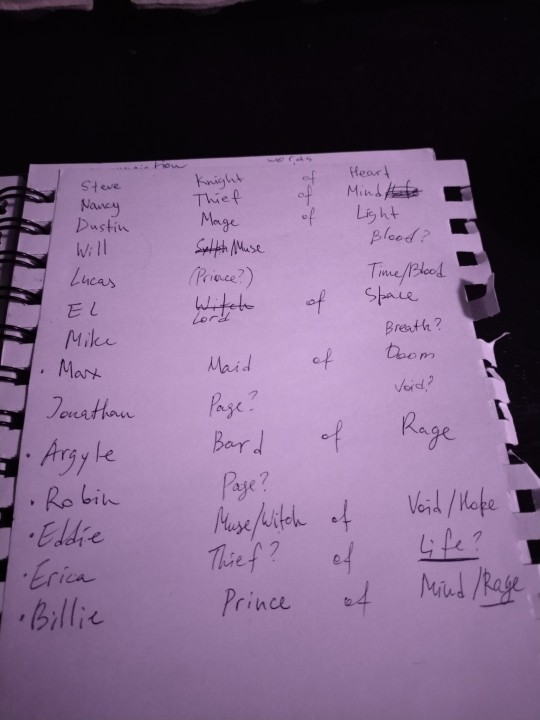 words
Steve Knight of Heart
Nancy Thief of Mind/
Dustin Mage of Light
Will Sylph/Muse Blood?
Lucas (Prince?) Time/Blood
El Witch of Space
Lord
Mike Breath?
• Max Maid of Doom
Jonathan Page? Void?
• Argyle Bard of Rage
• Robin Page?
• Eddie Muse/Witch of Void/Hope
• Erica Thief? of Life?
• Billie Prince of Mind/Rage